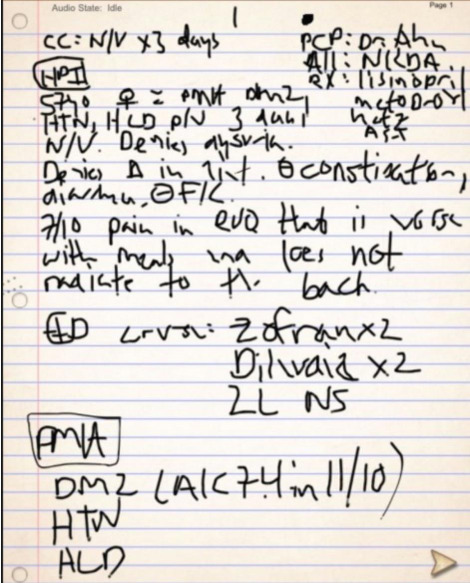 Audio State: Idle
Page 1
1
CC: N/V x3 days
PCP: Dr. Ahn
All: NKDA
RX: lisinopril
metoprolol
hctz
ASA
HPI
57yo ♀ c PMH DM2,
HTN, HLD p/w 3 days
N/V. Denies dysuria.
Denies Δ in diet. ⊖ constipation,
diarrhea, ⊖ F/C.
7/10 pain in RUQ that is worse
with meals and does not
radiate to the back.
ED course: Zofran x2
Dilaudid x2
2L NS
PMH
DM2 (A1C 7.4 in 11/10)
HTN
HLD